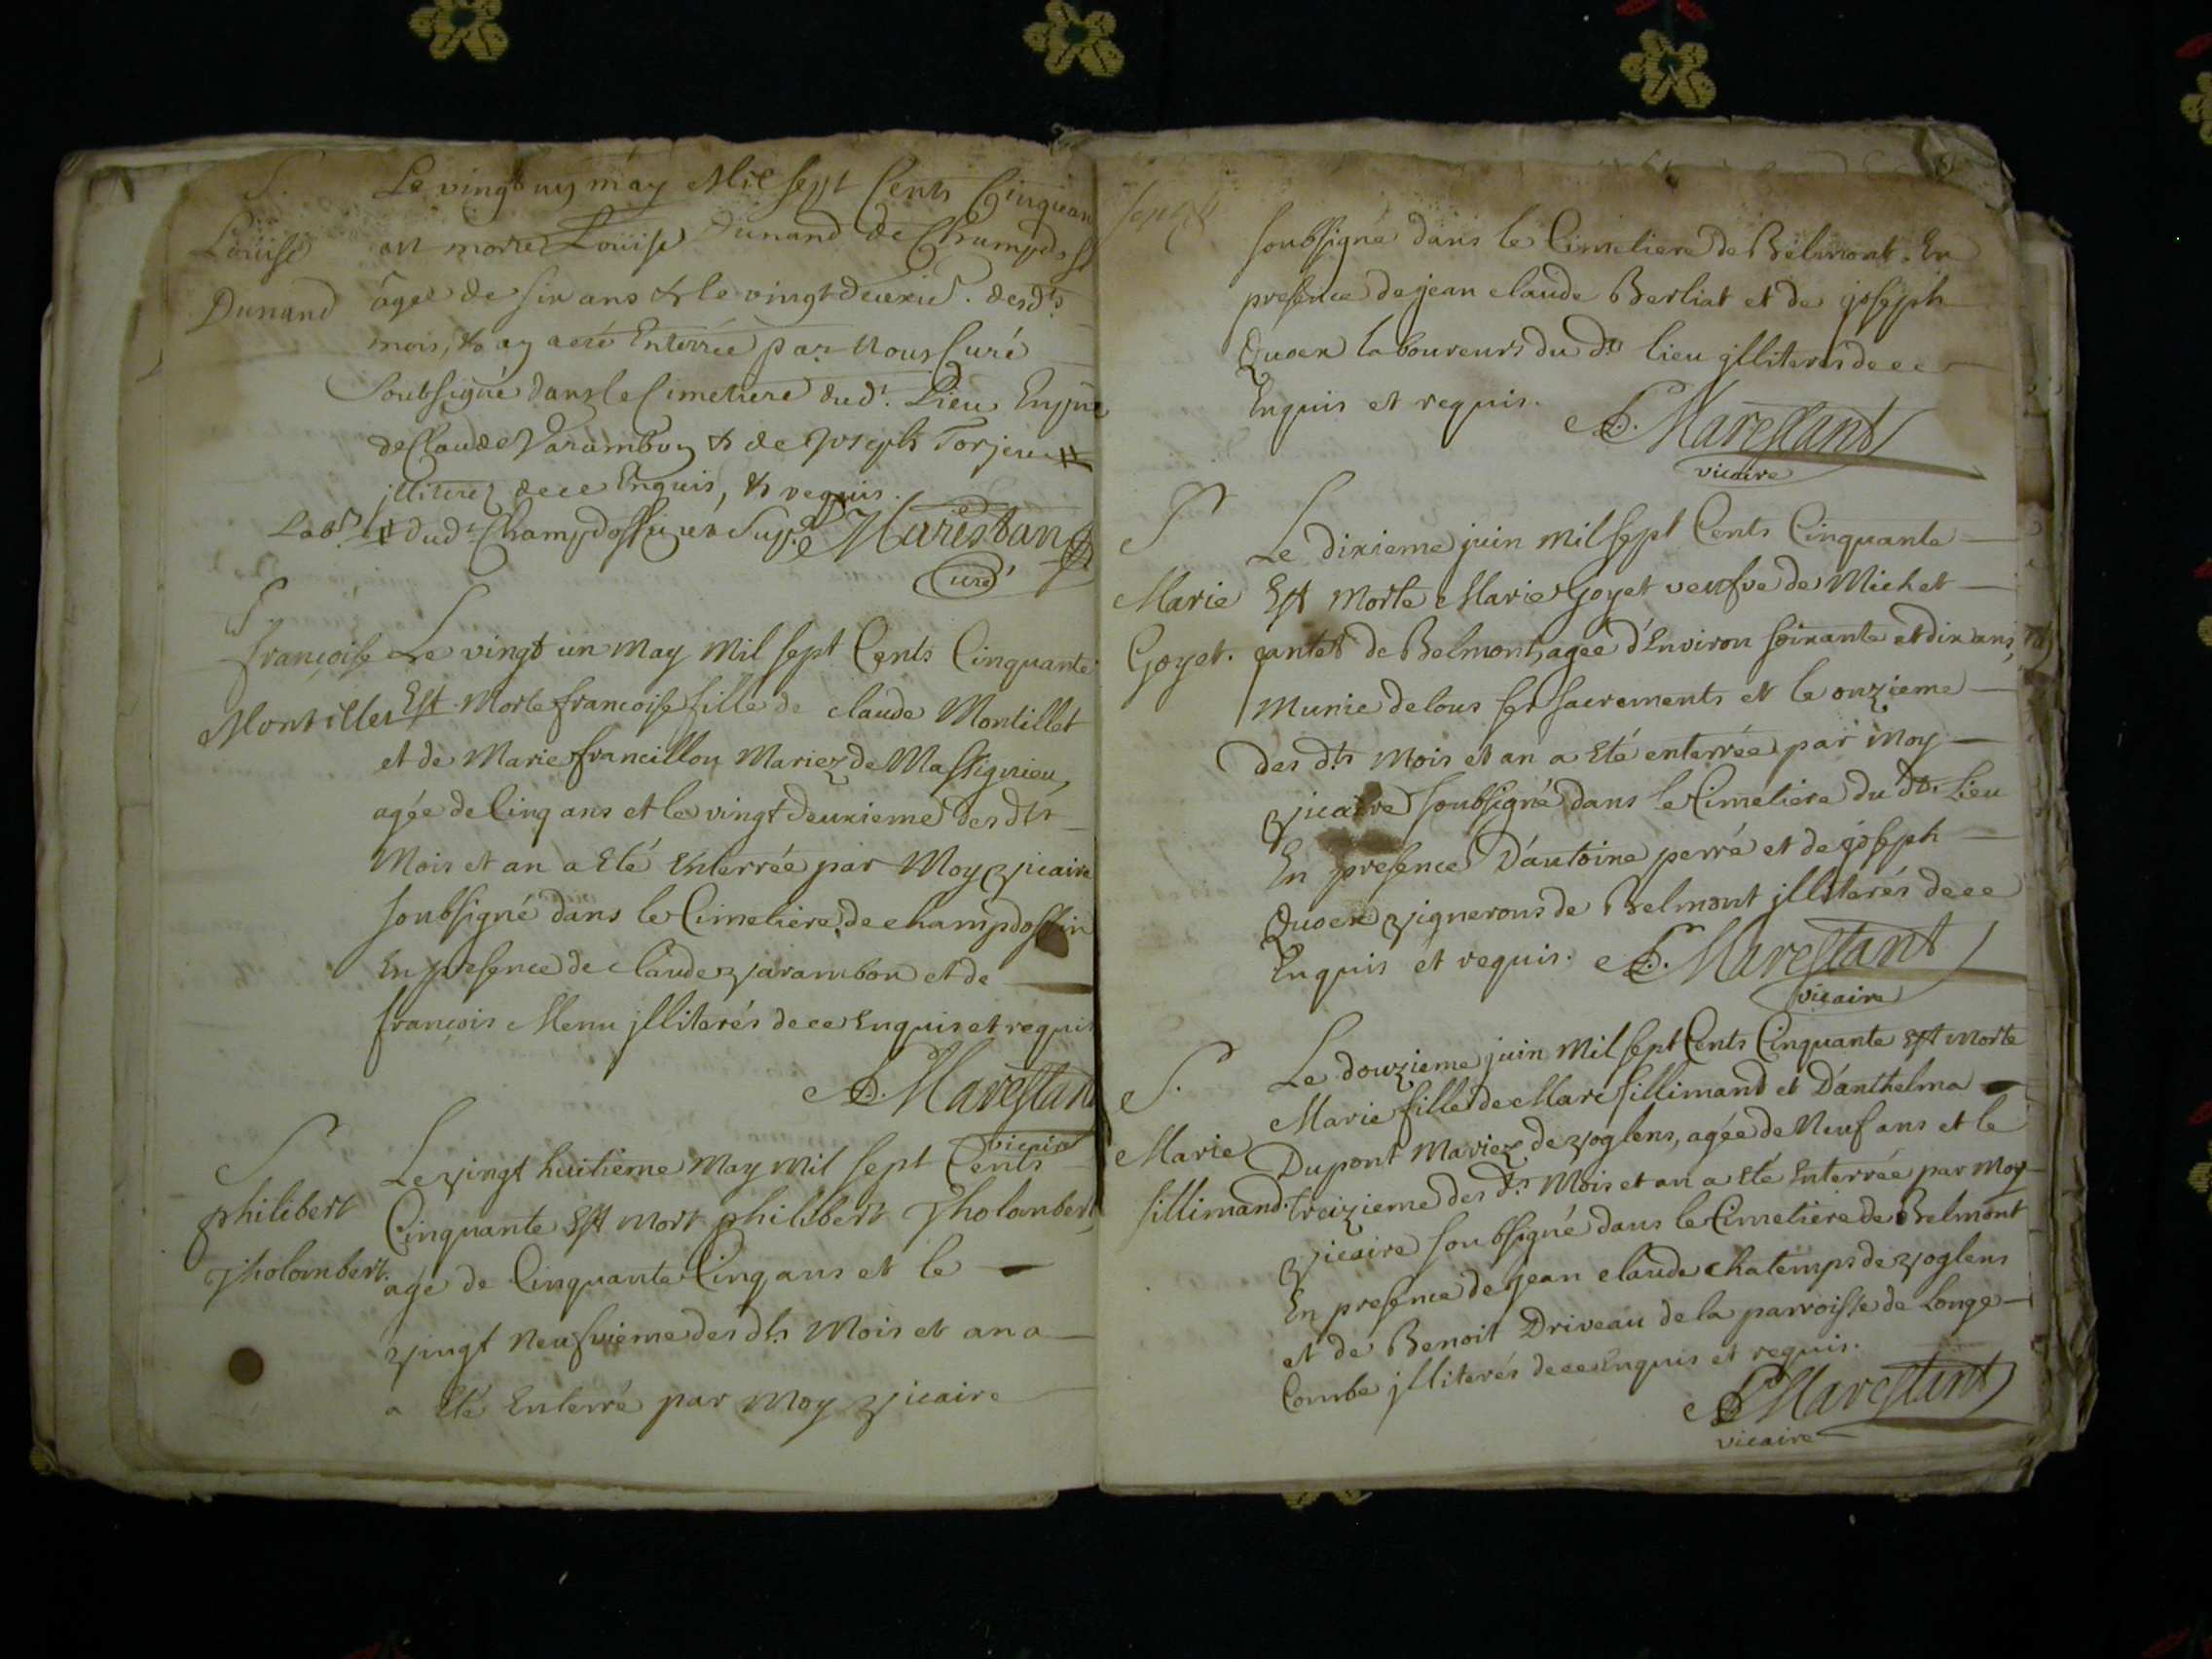 S.
Loüise
Dunand
Le vingt un may Mil sept Cents Cinquan
est morte Loüise Dunand de Champdoss
âgée de six ans & le vingt deuxie. des d.s
mois, & an a eté Enterrée par Nous Curé
Soubsigné dans le Cimetiere dud.t Lieu En p.nce
de Claude Varambon & de Joseph Torjeu #
jlliterez de ce Enquis, & requis.
Lab.rs # dud.t Champdossin
Marestan
Curé
S
françoise
Montillet
Le vingt un May Mil sept Cents Cinquante
Est Morte francoise fille de claude Montillet
et de Marie francillon Mariez de Massignieu,
agée de Cinq ans et le vingt deuxieme des d.ts
Mois et an a Eté Enterrée par Moy Vicaire
soubsigné dans le Cimetiere de champdossin
En presence de claude varambon et de
françois Menu jlliterés de ce Enquis et requis
Marestant
vicaire
S
philibert
Tholombert.
Le Vingt huitieme May Mil sept Cents
Cinquante Est Mort philibert Tholombert,
agé de Cinquante Cinq ans et le
Vingt Neufvieme des d.ts Mois et an a
a Eté Enterré par Moy Vicaire
soubsigné dans le Cimetiere de Belmont. En
presence de jean claude Berliat et de joseph
laboureurs du d.t lieu jlliterés de ce
Enquis et requis.
Marestant
vicaire
S
Marie
Goyet.
Le dixieme juin Mil sept Cents Cinquante
Est Morte Marie Goyet veufve de Michel
de Belmont, agée d'Environ soixante et dix ans,
Munie de tous ses sacrements et le onzieme
des d.ts Mois et an a Eté enterrée par Moy
Vicaire soubsigné dans le Cimetiere du d.t Lieu
En presence D'antoine perré et de joseph
Vignerons de Belmont jlliterés de ce
Enquis et requis.
Marestant
vicaire
S.
Marie
sillimand.
Le douzieme juin Mil sept Cents Cinquante Est Morte
Marie fille de Marc sillimand et D'anthelma
Dupont Mariez de Voglens, agée de Neuf ans et le
treizieme des d.ts Mois et an a Eté Enterrée par Moy
Vicaire soubsigné dans le Cimetiere de Belmont
En presence de jean claude chatemps de Voglens
et de Benoit Driveau de la parroisse de Longe
Combe jlliterés de ce Enquis et requis.
Marestant
vicaire